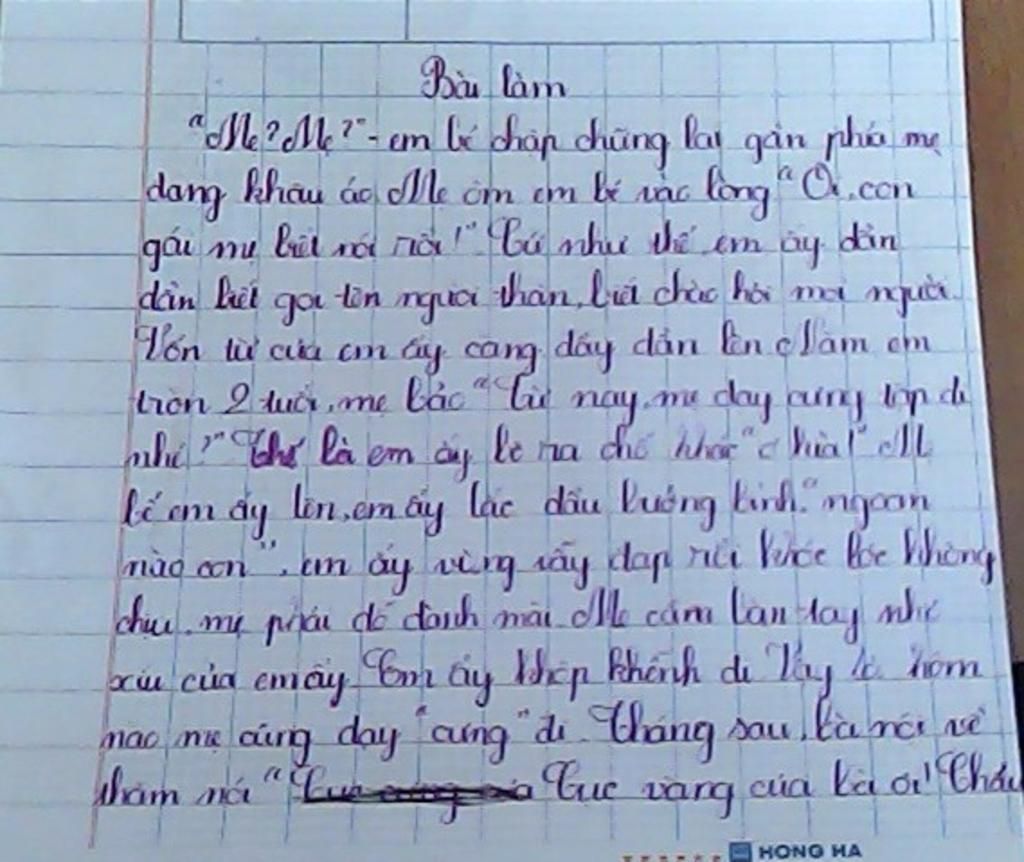 Bài làm
"Mẹ? Mẹ?" - em bé chập chững lại gần phía mẹ
đang khâu áo. Mẹ ôm em bé vào lòng "Ôi, con
gái mẹ biết nói rồi!" Cứ như thế, em ấy dần
dần biết gọi tên người thân, biết chào hỏi mọi người.
Vốn từ của em ấy càng dày dần lên. Năm em
tròn 2 tuổi, mẹ bảo "Từ nay, mẹ dạy cưng tập đi
nhé?" Thế là em ấy bò ra chỗ khác "Chưa!" Mẹ
bế em ấy lên, em ấy lắc đầu bướng bỉnh. "ngoan
nào con", em ấy vùng vẫy đạp rồi khóc lóc không
chịu, mẹ phải dỗ dành mãi. Mẹ cầm bàn tay nhỏ
xíu của em ấy. Em ấy khấp khểnh đi. Vậy là hôm
nào mẹ cũng dạy "cưng" đi. Tháng sau, bà nội về
thăm nói " Cục vàng của bà ơi! Cháu
HONG HA